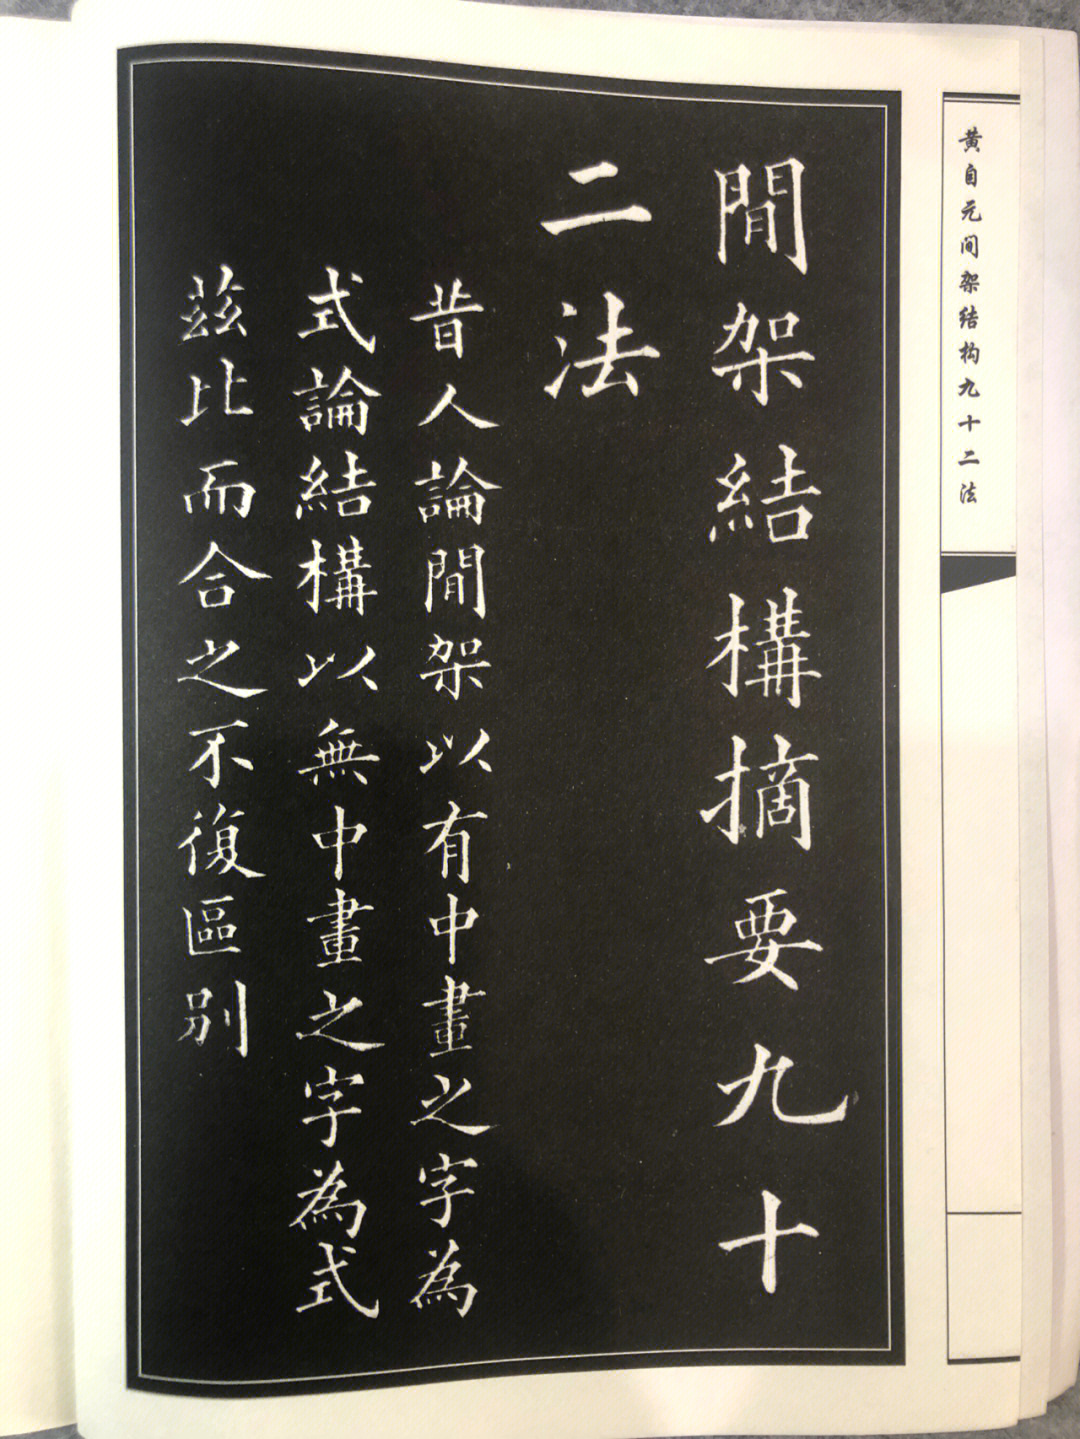 黄自元间架结构九十二法
間架結構摘要九十
二法
昔人論間架以有中畫之字為
式論結構以無中畫之字為式
茲比而合之不復區别